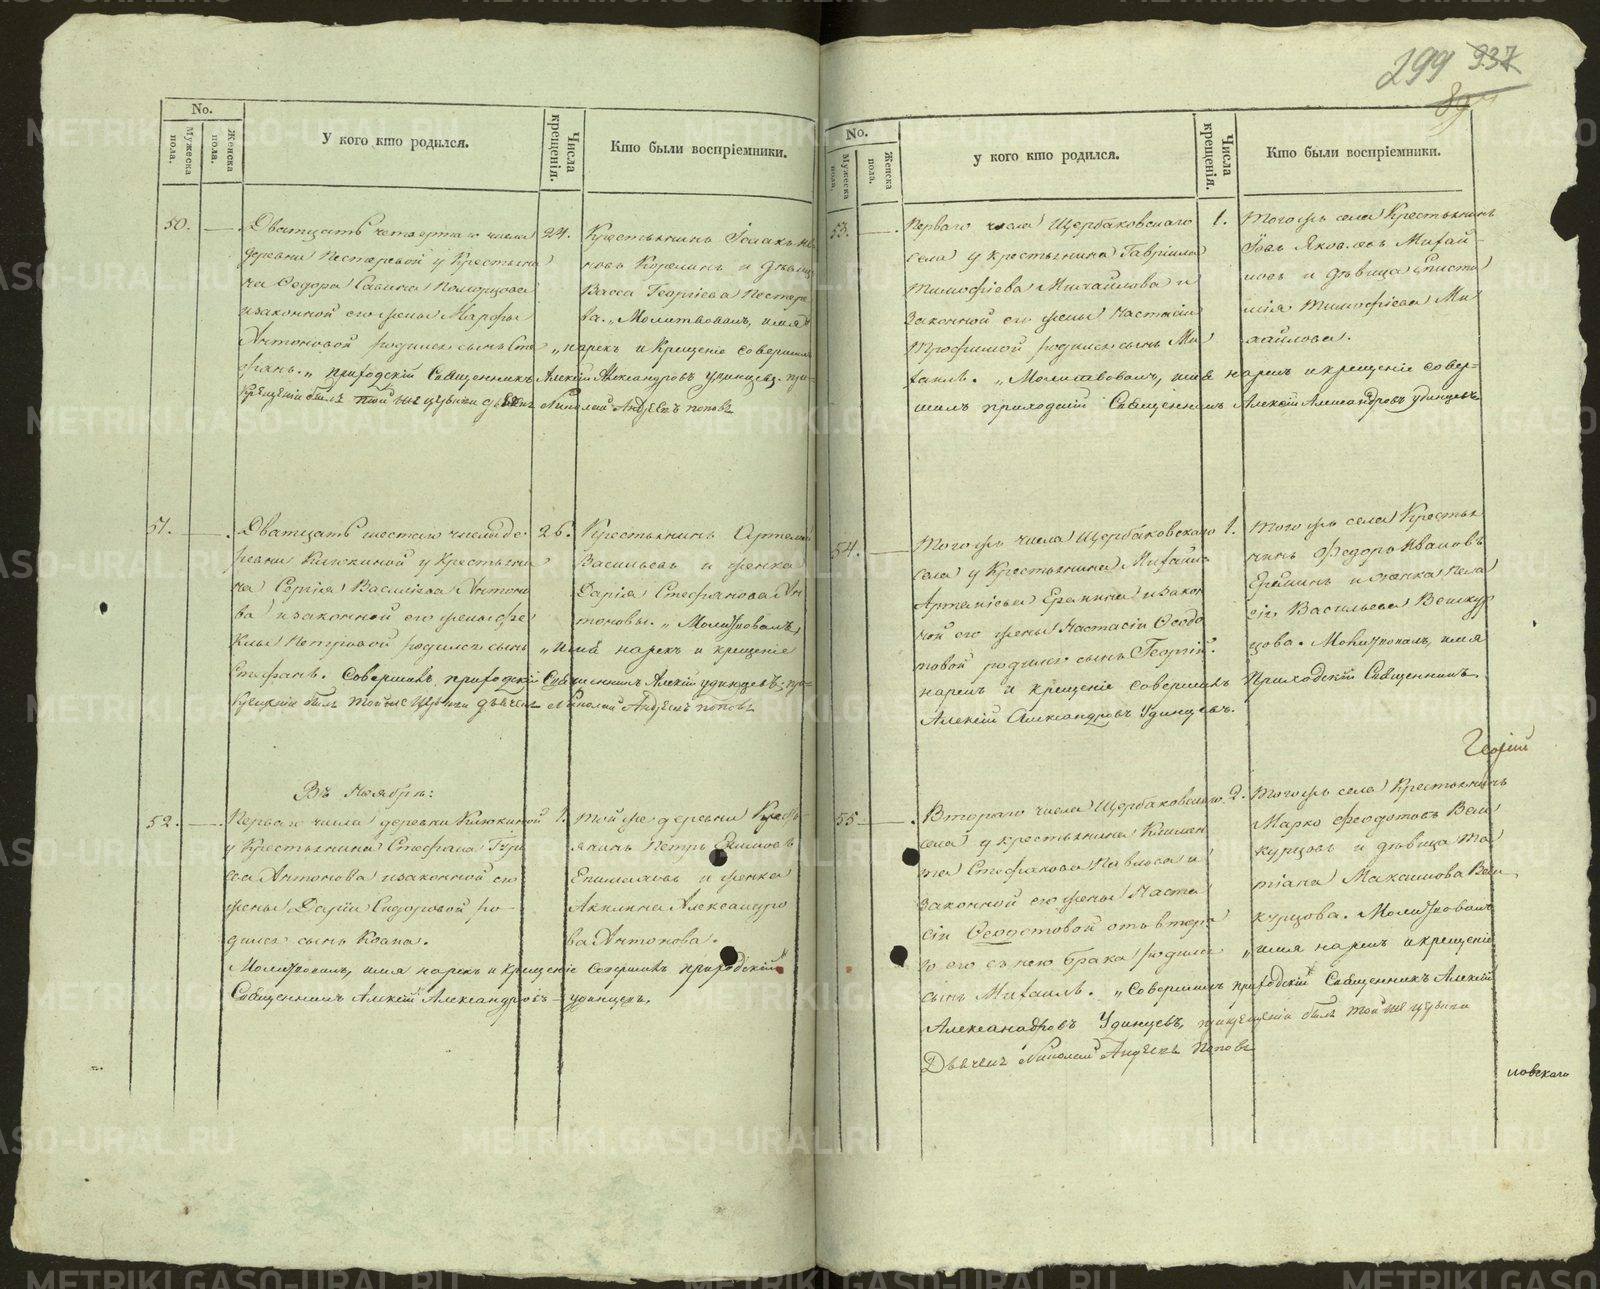 299 937
No.
Мужеска пола.
Женска пола.
У кого кто родился.
Числа крещенія.
Кто были воспріемники.
50.
Дватцать четвертаго числа
деревни Пестеревой у Крестьяни
на Ѳедора Савина Поморцова
изаконной его жены Марфы
Антоновой родился сынъ Сте
фанъ. „ приходскій Священникъ Алексій Александровъ Удинцевъ. при
крещеніи былъ той же церкви дьячекъ Николай Андреевъ Поповъ
24.
Крестьянинъ Исаакъ
новъ Корелинъ и дѣвица
Васса Георгіева Пестере
ва. „ Молитвовалъ, имя
„ нарекъ и Крещеніе совершилъ
51.
Дватцать шестаго числа де
ревни Клюкиной у Крестьяни
на Сергія Василіева Антоно
ва изаконной его жены Ѳе
клы Петровой родился сынъ
Стефанъ. Совершилъ приходскій Священникъ Алексій Удинцевъ; при
крещеніи былъ той же церкви дьячекъ Николай Андреевъ Поповъ
26.
Крестьянинъ Артемій
Васильевъ и женка
Дарія Стефанова Ан
тоновы. „ Молитвовалъ,
„ имя нарекъ и крещеніе
Въ Ноябрѣ:
52.
Перваго числа деревни Клюкиной
у Крестьянина Стефана
Антонова изаконной его
жены Даріи Сидоровой ро-
дился сынъ Козма.
Молитвовалъ, имя нарекъ и крещеніе совершилъ приходскій
Священникъ Алексій Александровъ Удинцевъ.
1.
Той же деревни Кресть-
янинъ Петръ
и женка
Акилина Александро
ва Антонова.
No.
Мужеска пола.
Женска пола.
у кого кто родился.
Числа крещенія.
Кто были воспріемники.
53.
Перваго числа Щербаковскаго
села у крестьянина Гавріила
Тимофіева Михайлова и
Законной его жены Настасіи
Трофимой родился сынъ Ми
хаилъ. „ Молитвовалъ, имя нарекъ и крещеніе совер-
шилъ приходскій Священникъ Алексій Александровъ Удинцевъ
1.
Тогожъ села Крестьянинъ
Іовъ Яковлевъ Михай-
ловъ и дѣвица Єписти
мія Тимофіева Ми
хайлова.
54.
Тогожъ числа Щербаковскаго
села у Крестьянина Михаила
Артеміева Еранина изакон
ной его жены Настасіи Ѳеодо
товой родился сынъ Георгій.
нарекъ и крещеніе совершилъ Приходскій Священникъ
Алексій Александровъ Удинцевъ.
1.
Тогожъ села Крестья
нинъ Ѳедоръ Ивановъ
и женка Пела
гія Васильева Вешкур
цова. Молитвовалъ, имя
Георгій
55.
Втораго числа Щербаковскаго
села у крестьянина Климен
та Стефанова Павлова и
законной его жены Наста
сіи Ѳеодотовой отъ втора
го его съ нею брака родился
сынъ Михаилъ. „ Совершилъ приходскій Священникъ Алексій
Александровъ Удинцевъ, прикрещеніи былъ той же церкви
Дьячекъ Николай Андреевъ Поповъ
2.
Тогожъ села Крестьянинъ
Марко Ѳеодотовъ Веш
курцовъ и дѣвица Та
тіана Максимова Веш
курцова. Молитвовалъ
„ имя нарекъ и крещеніе
ловскаго